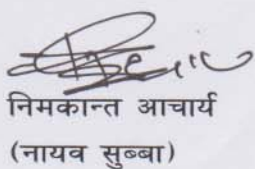 निमकान्त आचार्य
(नायव सुब्बा)